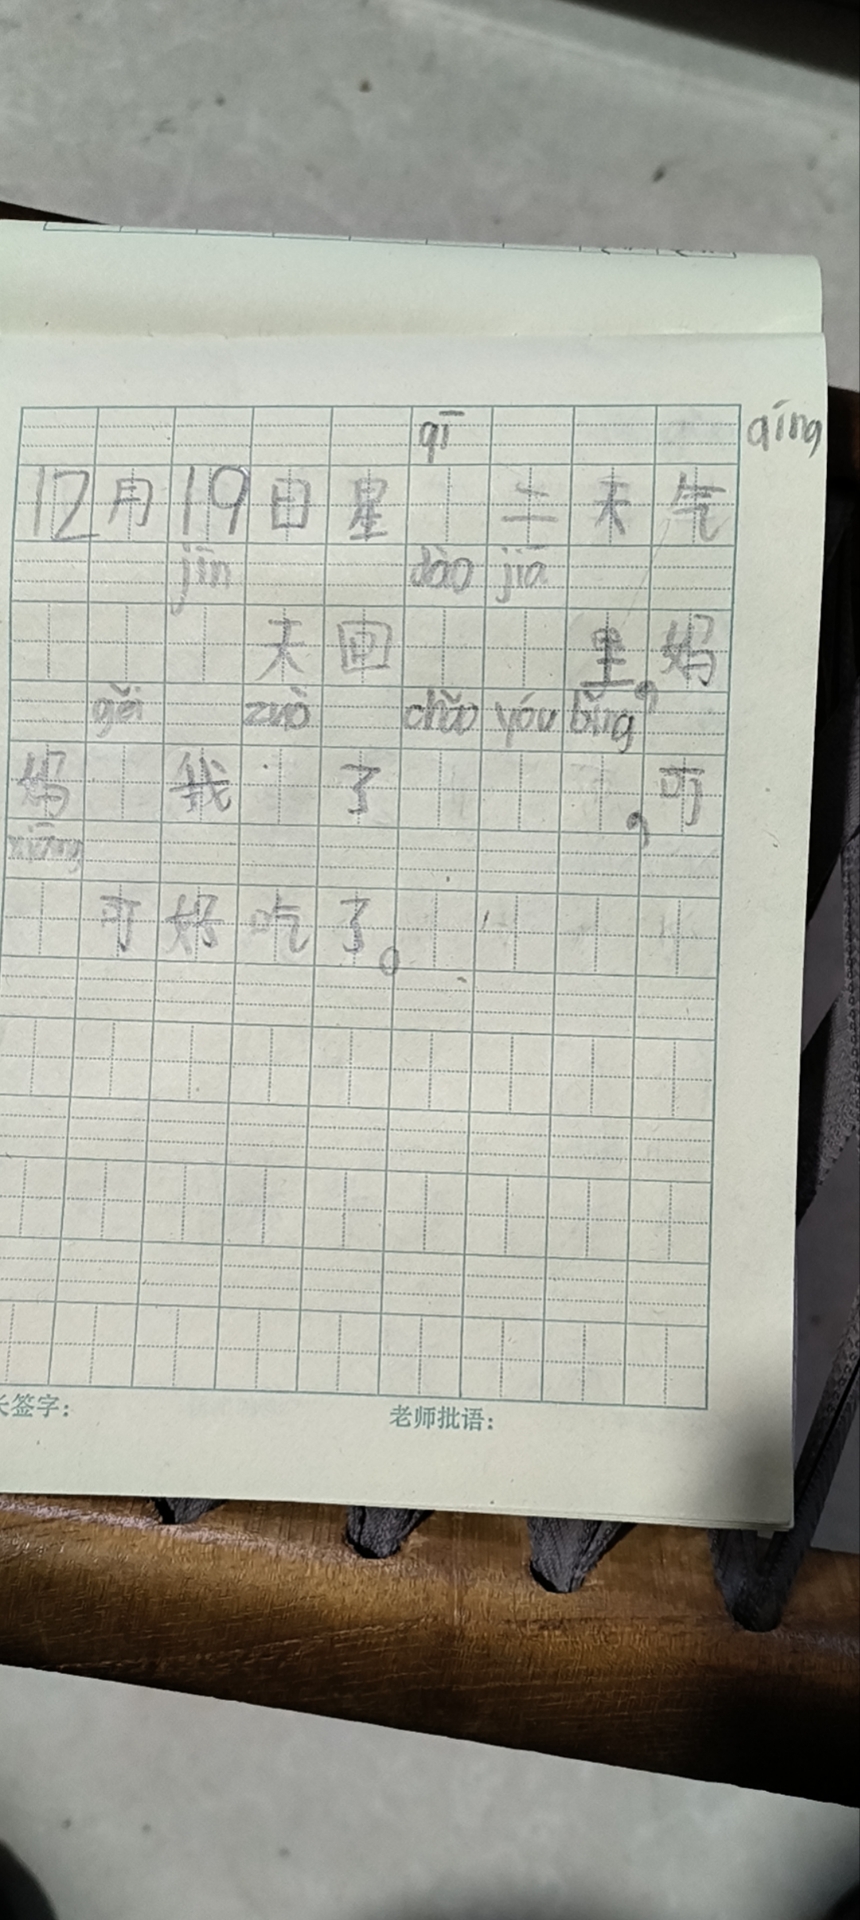 qī qíng
12月19日星二天气
jīn dào jiā
天回里,妈
gěi zuò chǎo yóu bǐng
妈我了,可
xiāng
可好吃了。
长签字:
老师批语: